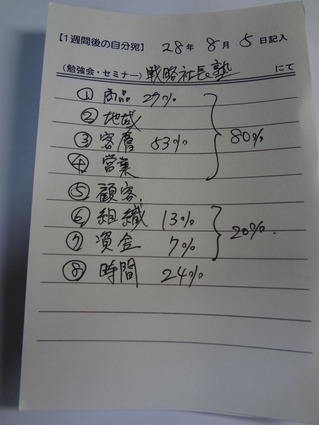 【1週間後の自分宛】 28年 8月 5日記入
(勉強会・セミナー) 戦略社長塾 にて
① 商品 27%
② 地域
③ 客層 53% 80%
④ 営業
⑤ 顧客
⑥ 組織 13%
⑦ 資金 7% 20%
⑧ 時間 24%